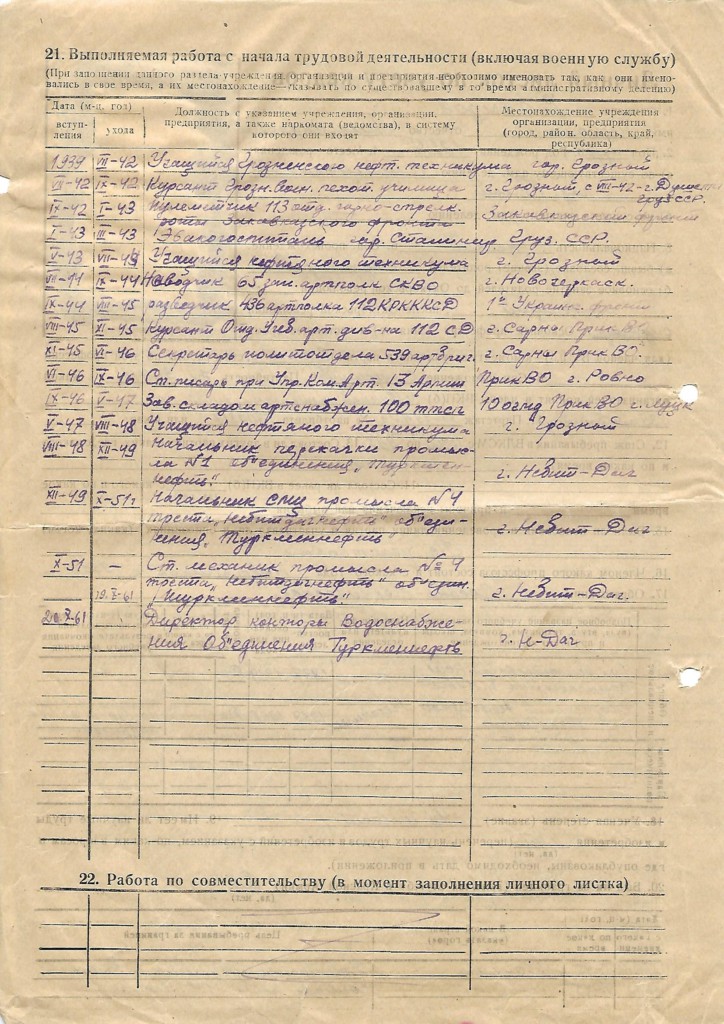 21. Выполняемая работа с начала трудовой деятельности (включая военную службу)
(При заполнении данного раздела учреждения, организации и предприятия необходимо именовать так, как они имено-
вались в свое время, а их местонахождение—указывать по существовавшему в то время административному делению)
Дата (м-ц. год)
вступ-
ления
ухода
Должность с указанием учреждения, организации,
предприятия, а также наркомата (ведомства), в систему
которого они входят
Местонахождение учреждения
организации, предприятия
(город, район, область, край,
республика)
1939 VII-42 Учащийся Грозненского нефт. техникума гор. Грозный
VII-42 IX-42 Курсант Грозн. Воен. пехот. училища г. Грозный, с VIII-42-г.
Груз ССР.
IX-42 I-43 Пулеметчик 113 отд. горно-стрелк. Закавказский фронт
роты Закавказского фронта
I-43 III-43 Эвакогоспиталь гор. Сталинир Груз. ССР.
V-43 Учащийся нефтяного техникума г. Грозный
IX-44 Наводчик 65 зап. артполк СКВО г. Новочеркасск.
IX-44 VIII-45 разведчик 436 артполка 112КРКККСД 1й Украин. фронт
VIII-45 XI-45 Курсант Отд. Учеб. арт. див-на 112 СД г. Сарны ПрикВО
XI-45 VI-46 Секретарь политотдела 539 артбриг. г. Сарны ПрикВО.
VI-46 IX-46 Ст. писарь при Упр. Ком. Арт. 13 Армии ПрикВО г. Ровно
IX-46 V-47 Зав. складом артснабжен. ПрикВО
V-47 VIII-48 Учащийся нефтяного техникума г. Грозный
VIII-48 XII-49 Начальник перекачки промыс-
ла №1 объединения „Туркмен-
нефть". г. Небит-Даг
XII-49 X-51г Начальник промысла №4
треста „Небитдагнефть" объеди-
нения „Туркменнефть" г. Небит-Даг
X-51 — Ст. механик промысла №4
треста „Небитдагнефть" объедин.
19.X-61 „Туркменнефть". г. Небит-Даг.
20 X-61 Директор конторы Водоснабже-
ния Объединения Туркменнефть г. Н-Даг
22. Работа по совместительству (в момент заполнения личного листка)